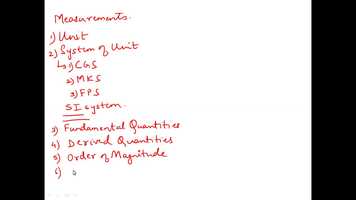 Measurements.
1) Unit
2) System of Unit
↳ 1) CGS
2) MKS
3) FPS
SI system.
3) Fundamental Quantities
4) Derived Quantities
5) Order of Magnitude
6)